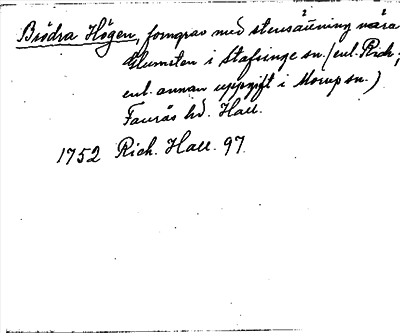 Brödra Högen, forngrav med stensättning nära
Glumsten i Stafsinge sn. (enl. Rich.,
enl. annan uppgift i Morup sn.)
Faurås hd. Hall.
1752 Rich. Hall. 97.